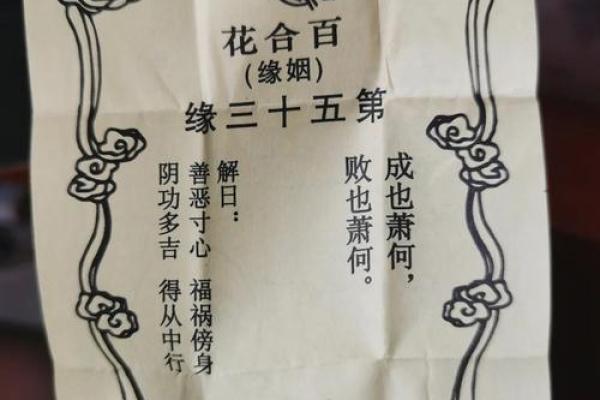 百合花
(姻缘)
第五十三缘
成也萧何，
败也萧何。
解日：
善恶寸心 福祸傍身
阴功多吉 得从中行